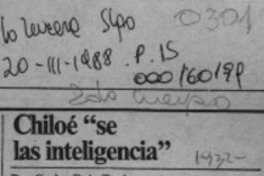 La Tercera Stgo 0301
20-III-1988 P. 15
000160199
2do cuerpo
Chiloé “se
las inteligencia”
1932-